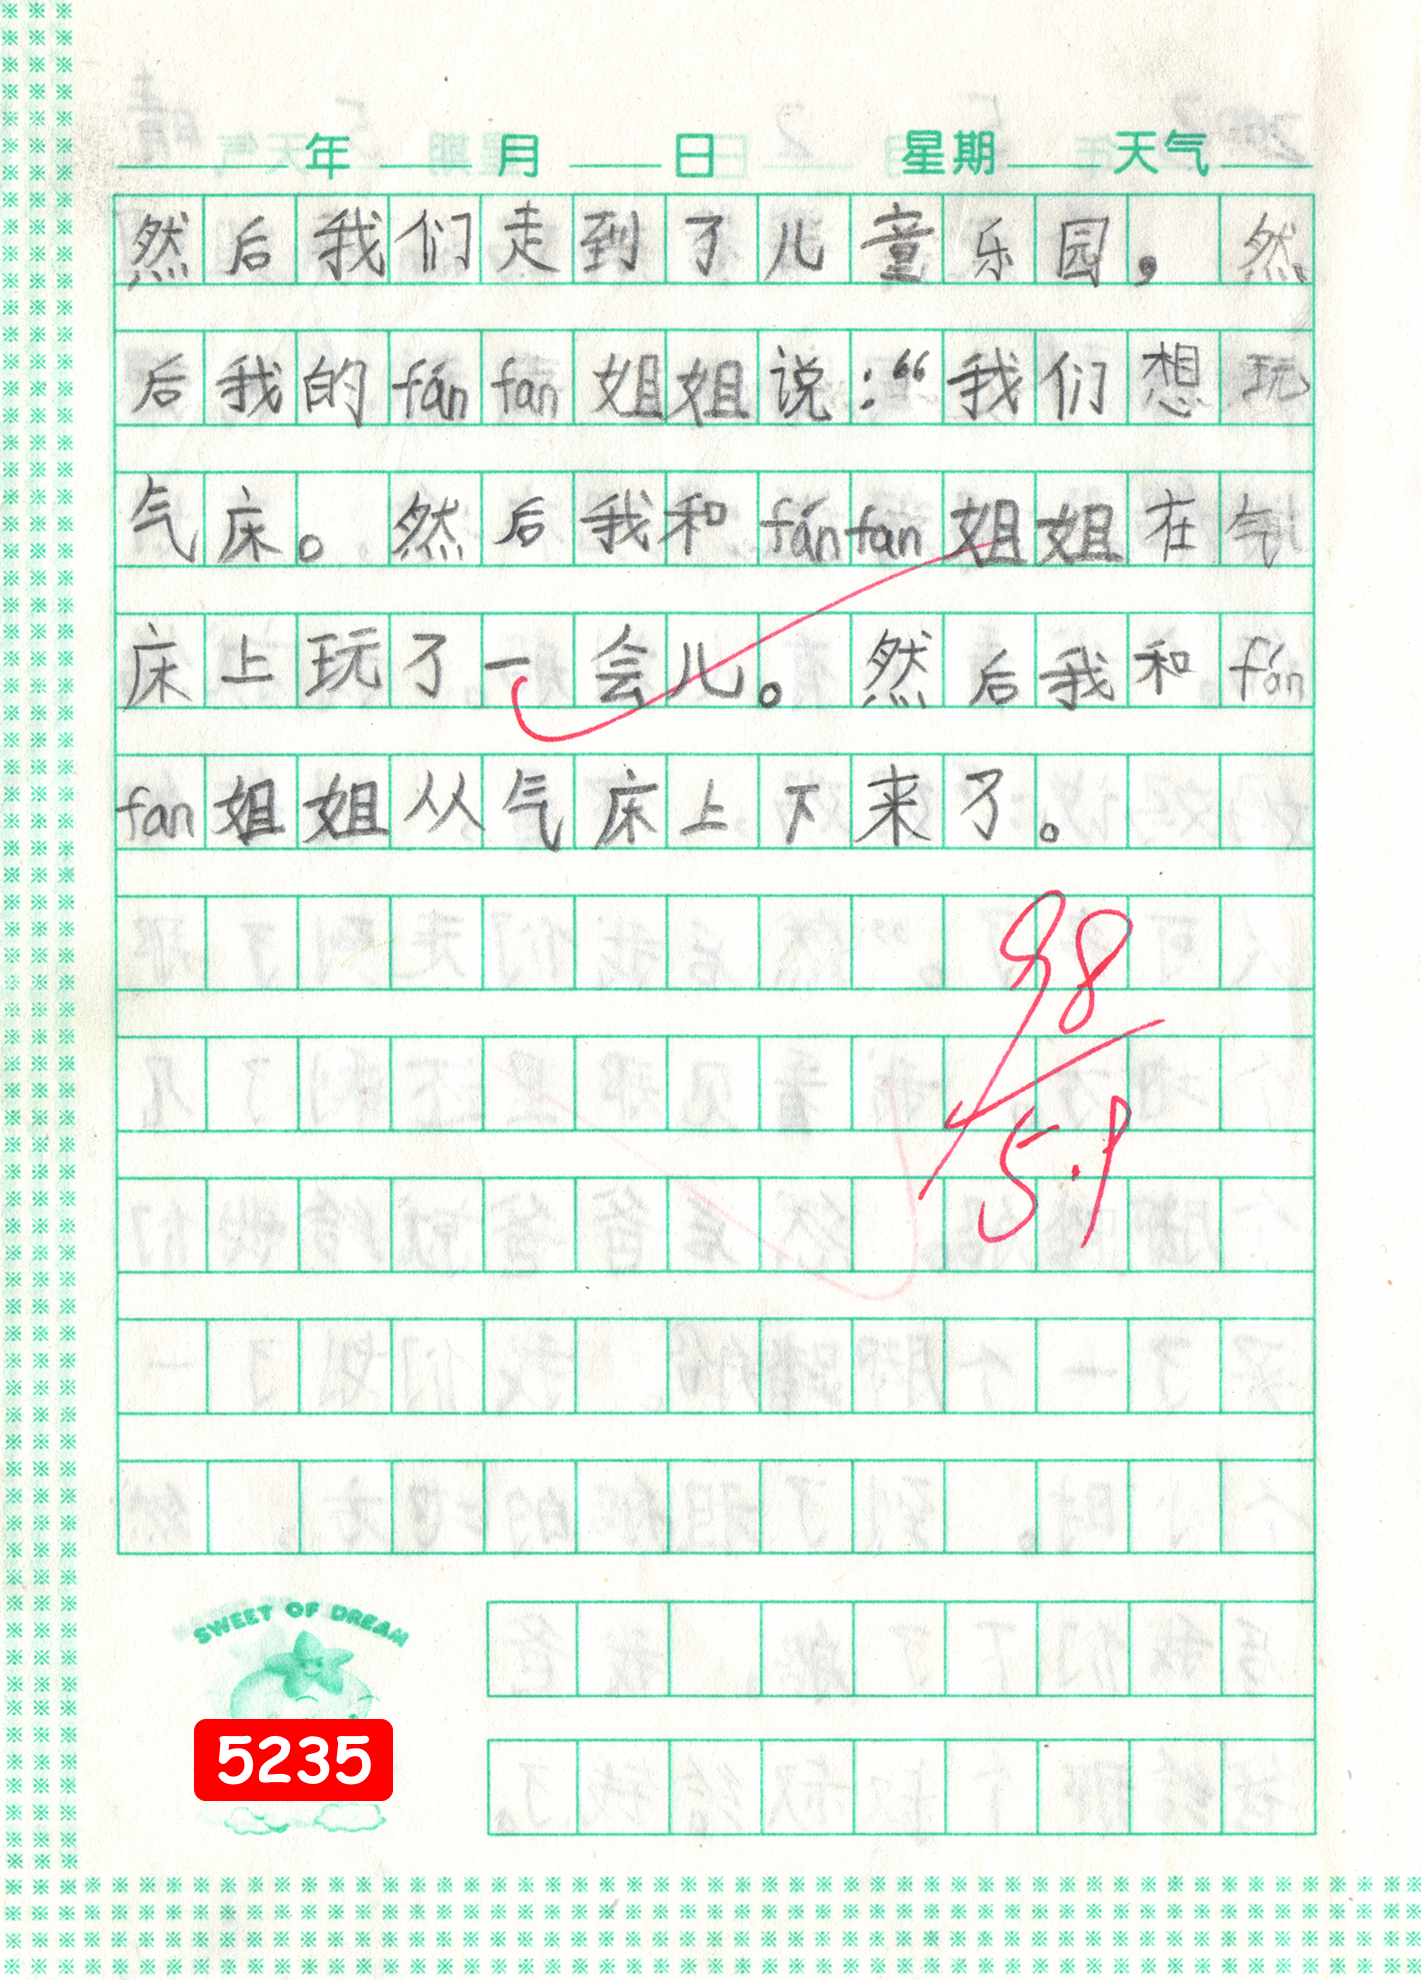 年 月 日 星期 天气
然后我们走到了儿童乐园,然
后我的fán fan姐姐说:“我们想玩
气床。然后我和fán fan姐姐在气
床上玩了一会儿。然后我和fán
fan姐姐从气床上下来了。
98
5.9
SWEET OF DREAM
5235